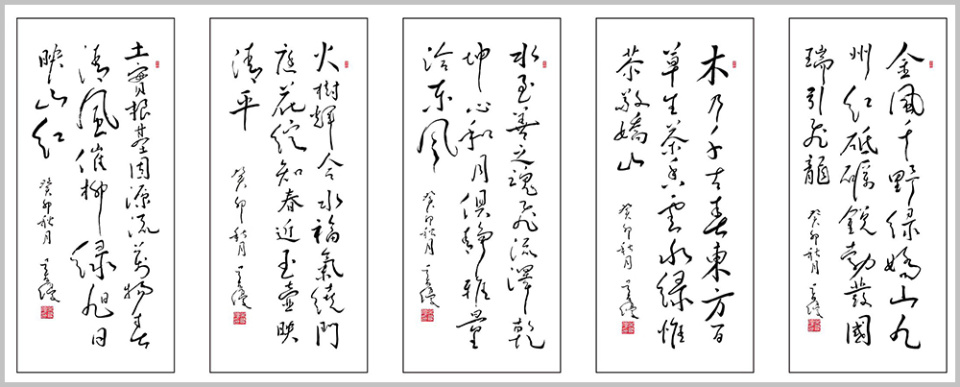 金風千野绿嬌山九
州紅砥礪銳勃發國
瑞引飛龍
癸卯秋月
木乃千古春東方百
草生茶香雲水绿惟
恭敬嬌山
癸卯秋月
水至善之魂飛流澤乾
坤心和月俱靜雅量
洽东風
癸卯秋月
火樹輝合水福氣繞門
庭花綻知春近玉壺映
清平
癸卯秋月
土實根基固源流萬物春
清風催柳绿旭日
映山红
癸卯秋月